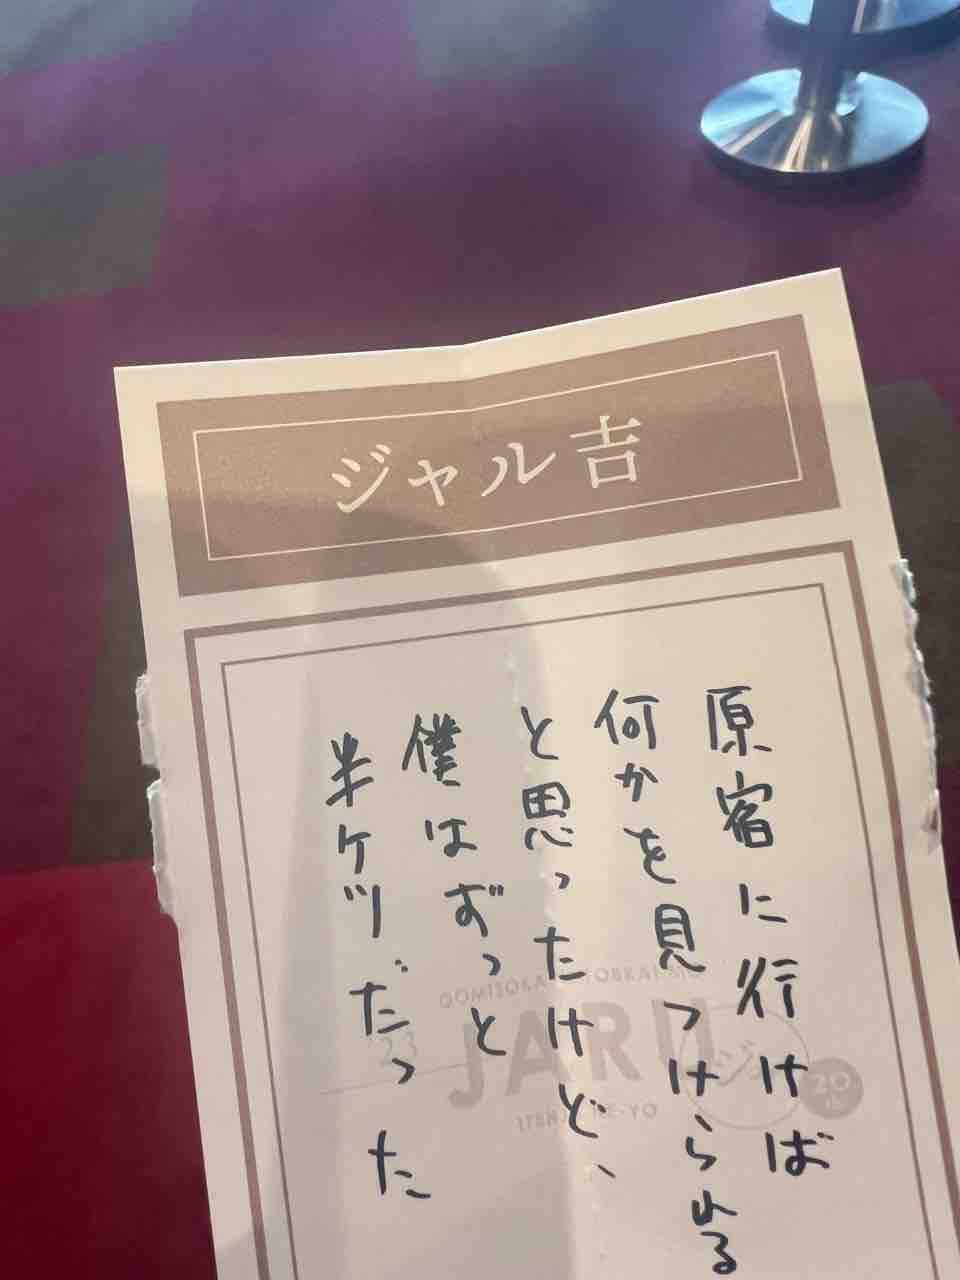 ジャル吉
原宿に行けば
何かを見つけられる
と思ったけど、
僕はずっと
半ケツだった
JARU
ジャ
20
23